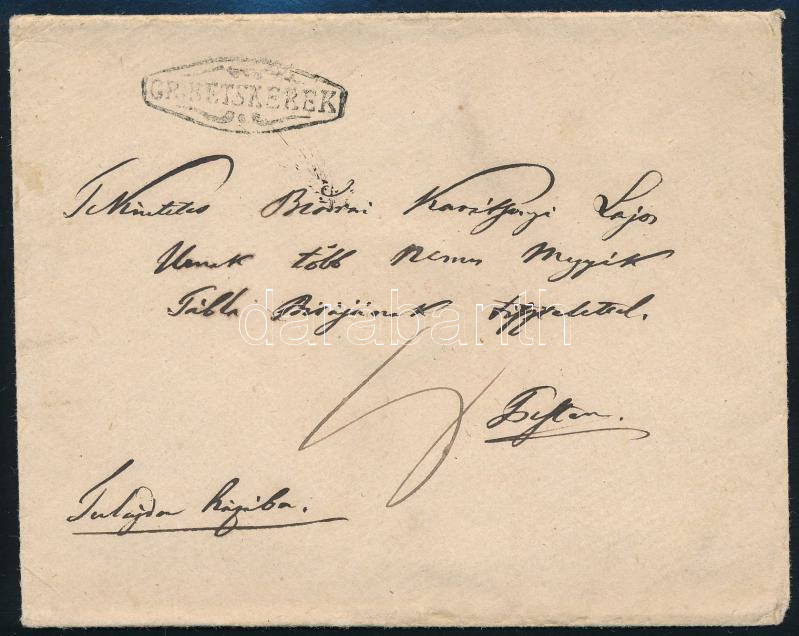 GR:BETSKEREK
Tekintetes Beodrai Karátsonyi Lajos
Urnak több Nemes Megyék
Tábla Birájának tisztelettel.
darabanth
Pesten.
Tulajdon házába.